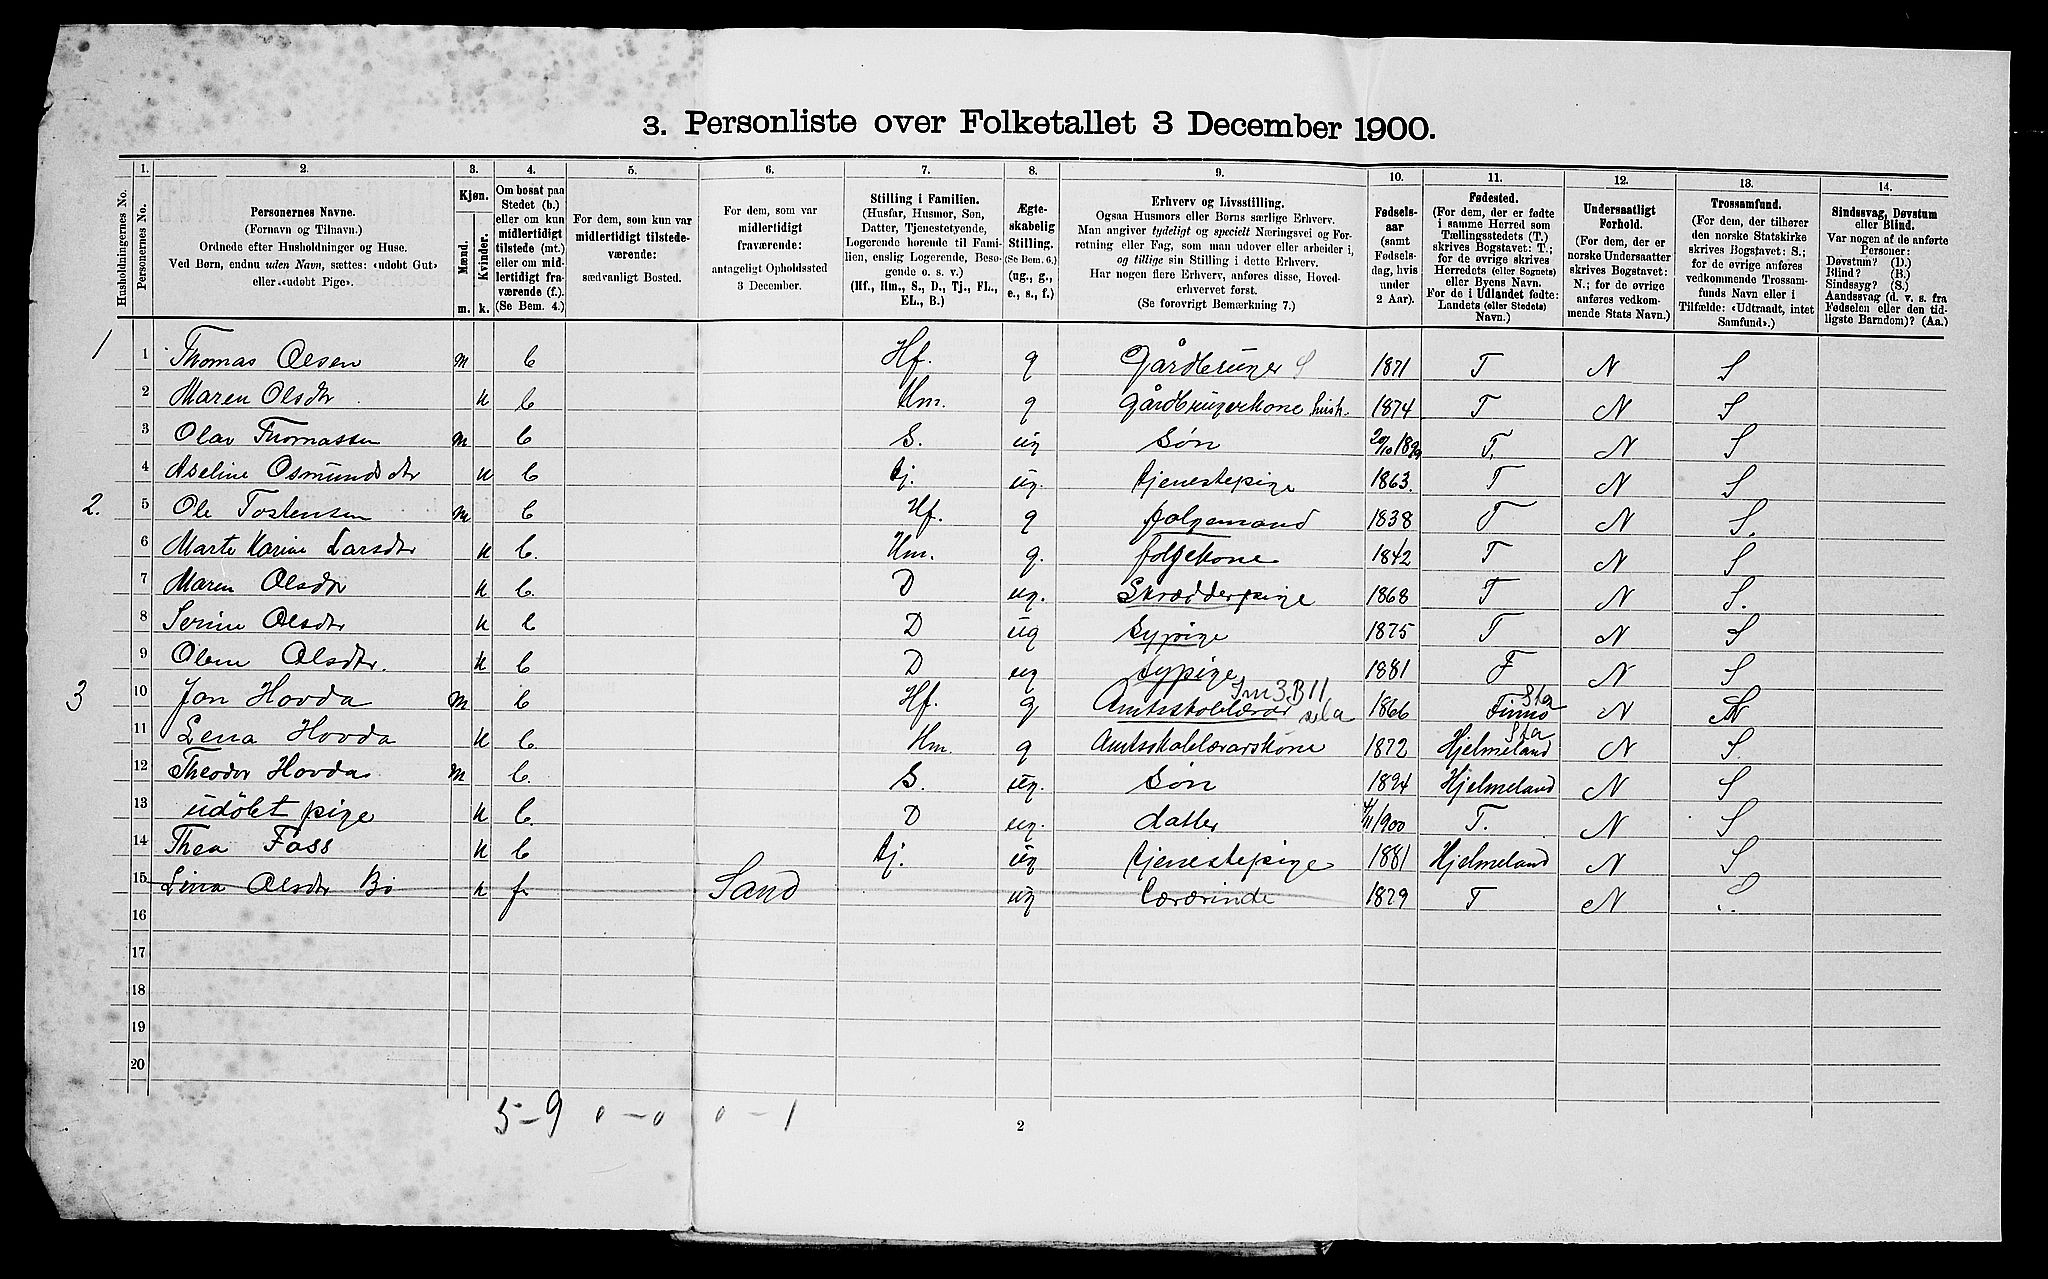 3. Personliste over Folketallet 3 December 1900.
Husholdningernes No.
1. Personernes No.
2. Personernes Navne.
(Fornavn og Tilnavn.)
Ordnede efter Husholdninger og Huse.
Ved Børn, endnu uden Navn, sættes: «udøbt Gut»
eller «udøbt Pige».
3. Kjøn.
Mænd. Kvinder.
m. k.
4. Om bosat paa
Stedet (b.)
eller om kun
midlertidigt
tilstede (mt.)
eller om mid-
lertidigt fra-
værende (f.).
(Se Bem. 4.)
5. For dem, som kun var
midlertidigt tilstede-
værende:
sædvanligt Bosted.
6. For dem, som var
midlertidigt
fraværende:
antageligt Opholdssted
3 December.
7. Stilling i Familien.
(Husfar, Husmor, Søn,
Datter, Tjenestetyende,
Logerende hørende til Fami-
lien, enslig Logerende, Besø-
gende o. s. v.)
(Hf., Hm., S., D., Tj., FL.,
EL., B.)
8. Ægte-
skabelig
Stilling.
(Se Bem. 6.)
(ug., g.,
e., s., f.)
9. Erhverv og Livsstilling.
Ogsaa Husmors eller Børns særlige Erhverv.
Man angiver tydeligt og specielt Næringsvei og For-
retning eller Fag, som man udover eller arbeider i,
og tillige sin Stilling i dette Erhverv.
Har nogen flere Erhverv, anføres disse, Hoved-
erhvervet først.
(Se forøvrigt Bemærkning 7.)
10. Fødsels-
aar
(samt
Fødsels-
dag, hvis
under
2 Aar).
11. Fødested.
(For dem, der er fødte
i samme Herred som
Tællingsstedets (T.)
skrives Bogstavet: T.;
for de øvrige skrives
Herredets (eller Sognets)
eller Byens Navn.
For de i Udlandet fødte:
Landets (eller Stedets)
Navn.)
12. Undersaatligt
Forhold.
(For dem, der er
norske Undersaatter
skrives Bogstavet:
N.; for de øvrige
anføres vedkom-
mende Stats Navn.)
13. Trossamfund.
(For dem, der tilhører
den norske Statskirke
skrives Bogstavet: S.;
for de øvrige anføres
vedkommende Trossam-
funds Navn eller i
Tilfælde: «Udtraadt, intet
Samfund».)
14. Sindssvag, Døvstum
eller Blind.
Var nogen af de anførte
Personer:
Døvstum? (D.)
Blind? (B.)
Sindssyg? (S.)
Aandssvag (d. v. s. fra
Fødselen eller den tid-
ligste Barndom)? (Aa.)
1 1 Thomas Olsen m b Hf. g Gårdbruger S 1871 T N S
2 Maren Olsdtr k b Hm. g gårdbrugerkone hush. 1874 T N S
3 Olav Thomassen m b S. ug søn 20/10 1899 T. N S
4 Aseline Osmundsdtr k b tj. ug. tjenestepige 1863. T N S
2. 5 Ole Tostensen m b Hf. g folgemand 1838 T N S.
6 Marte Karine Larsdtr k b. Hm. g. folgekone 1842 T N S
7 Maren Olsdtr k b. D ug. Skrædderpige 1868 T N S.
8 Serine Olsdtr k b D ug sypige 1875 T N S
9 Olene Olsdtr. k b D ug sypige 1881 T N S
3 10 Jon Hovda m b Hf. g Amtsskolelærar 3 B 11 1866 Finnø Sta N S
11 Lena Hovda k b. Hm. g Amtsskolelærarskone 1872 Hjelmeland Sta N S.
12 Theodor Hovda m b. S. ug. søn 1894 Hjelmeland N S
13 udøbt pige k b. D ug. datter 4/11 1900 T. N S
14 Thea Foss k b tj. ug tjenestepige 1881 Hjelmeland N S
15 Lina Olsdtr Bø k f. Sand ug Lærerinde 1879 T N S
16
17
18
19
20
5 – 9 0 – 0 0 – 1
2